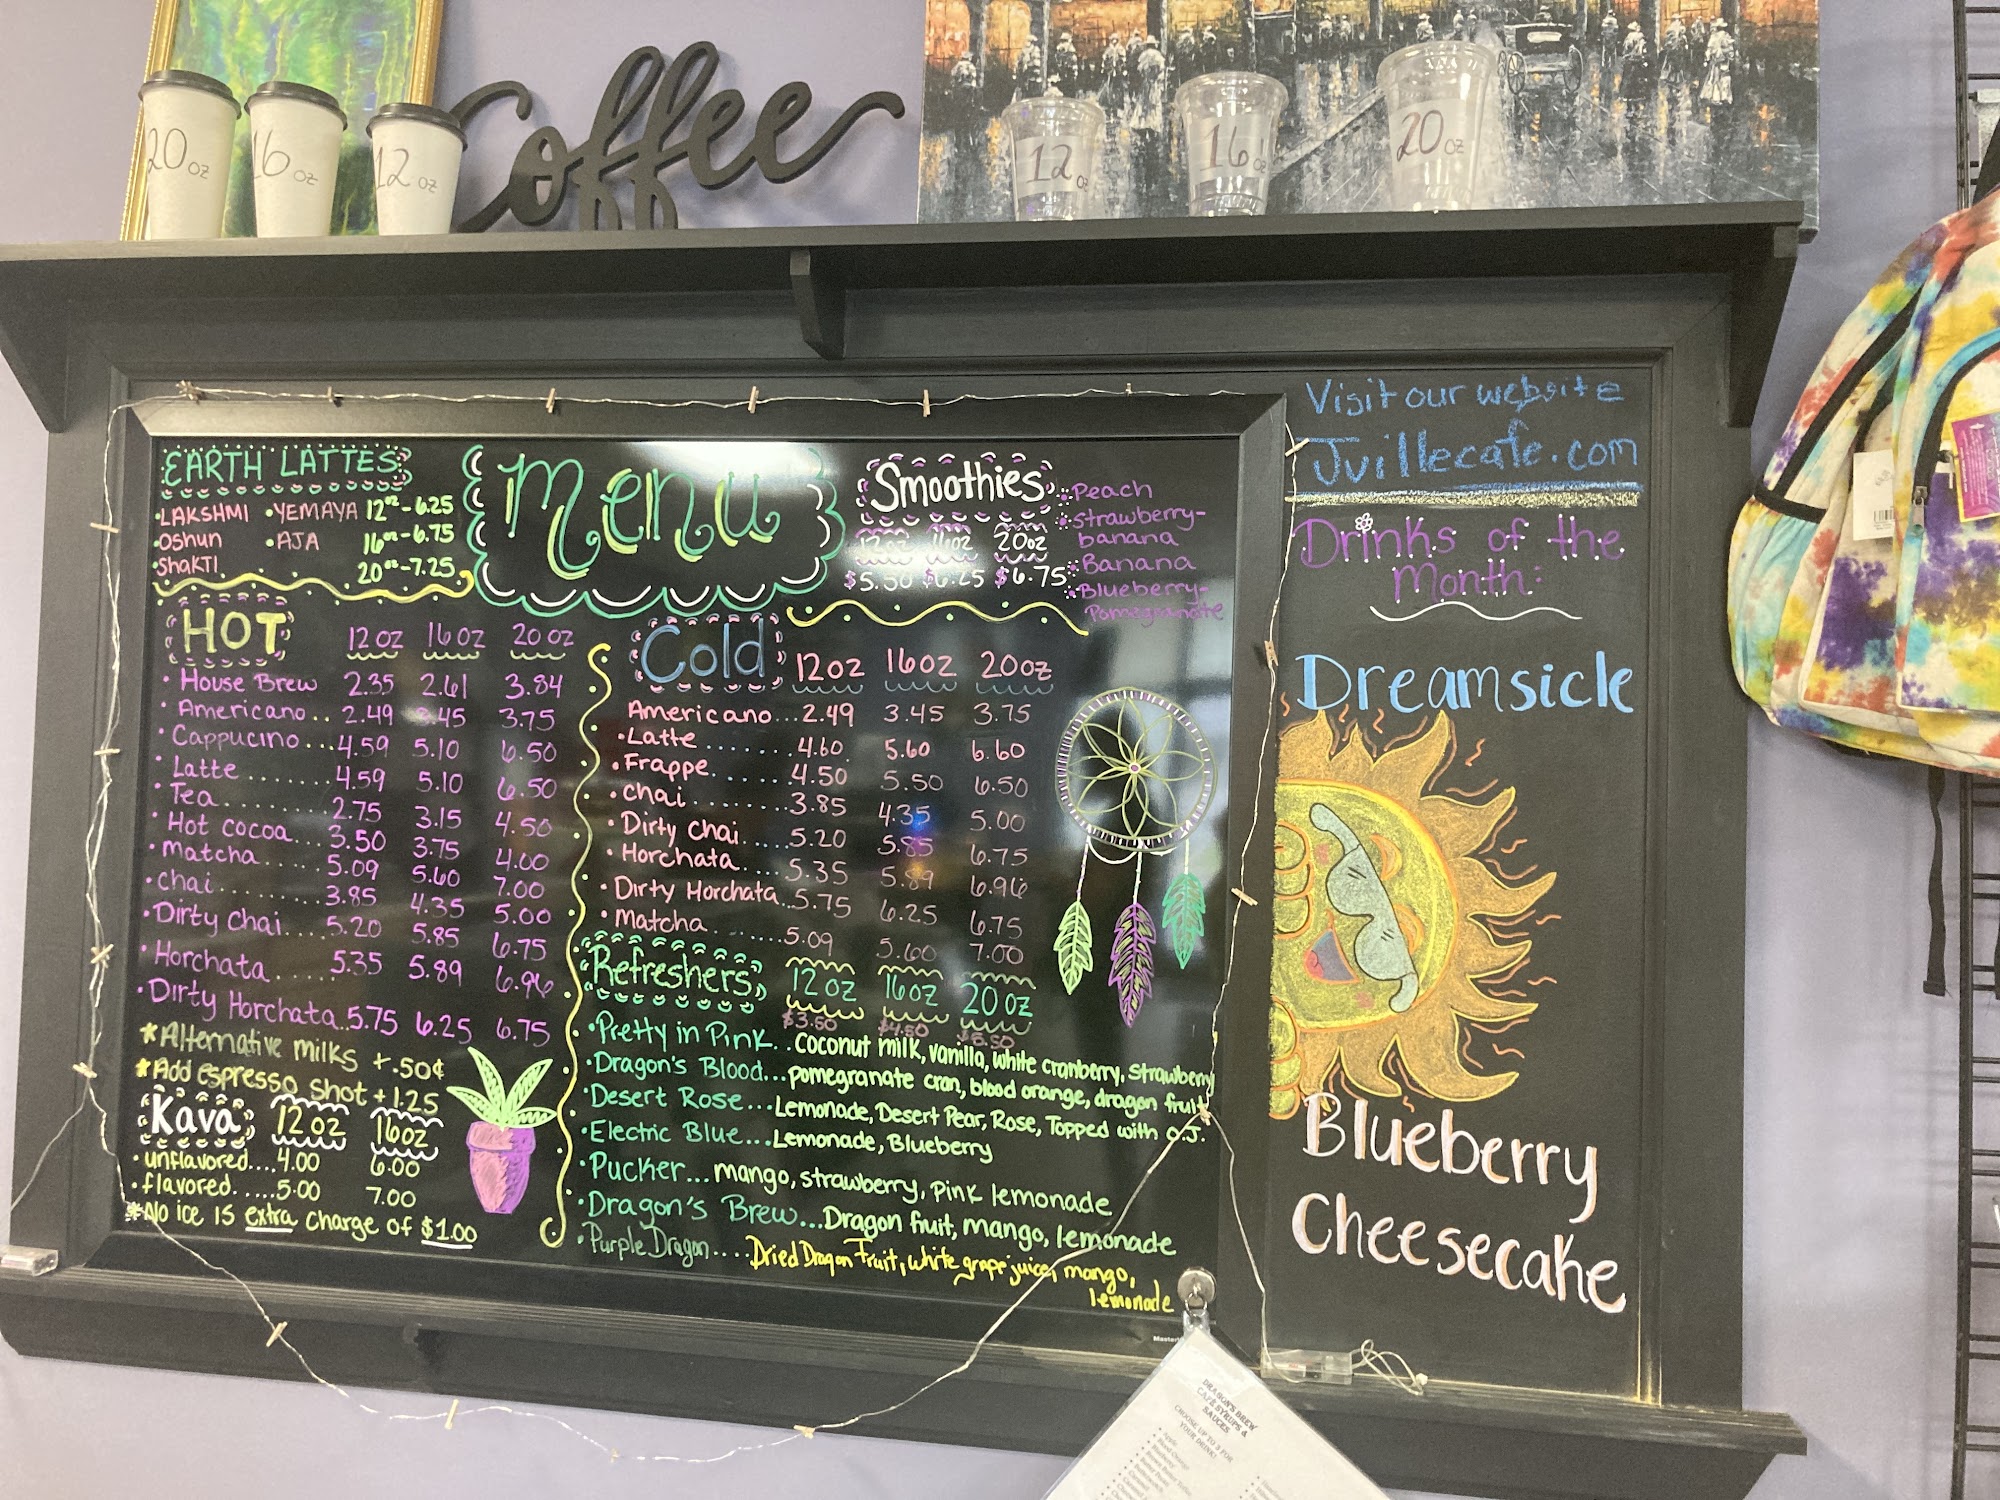 20 oz
16 oz
12 oz
coffee
12 oz
16 oz
20 oz
EARTH LATTES
•LAKSHMI •YEMAYA 12oz-6.25
•Oshun •AJA 16oz-6.75
•ShaKTI 20oz-7.25
Menu
Smoothies
12oz 16oz 20oz
$5.50 $6.25 $6.75
Peach
Strawberry-
banana
Banana
Blueberry-
Pomegranate
HOT 12oz 16oz 20oz
• House Brew 2.35 2.61 3.84
• Americano.. 2.49 3.45 3.75
• Cappucino...4.59 5.10 6.50
• Latte....... 4.59 5.10 6.50
• Tea........ 2.75 3.15 4.50
• Hot cocoa... 3.50 3.75 4.00
• Matcha..... 5.09 5.60 7.00
• chai........ 3.85 4.35 5.00
• Dirty Chai....5.20 5.85 6.75
• Horchata.....5.35 5.89 6.96
• Dirty Horchata..5.75 6.25 6.75
*Alternative milks +.50¢
*Add espresso shot +1.25
Kava 12oz 16oz
• unflavored....4.00 6.00
• flavored.....5.00 7.00
*No ice is extra charge of $1.00
Cold 12oz 16oz 20oz
Americano...2.49 3.45 3.75
•Latte....... 4.60 5.60 6.60
•Frappe...... 4.50 5.50 6.50
•chai........3.85 4.35 5.00
•Dirty Chai.....5.20 5.85 6.75
•Horchata.....5.35 5.89 6.96
•Dirty Horchata...5.75 6.25 6.75
•Matcha.......5.09 5.60 7.00
Refreshers 12oz 16oz 20oz
$3.50 $4.50 $5.50
•Pretty in Pink..coconut milk, vanilla, white cranberry, strawberry
•Dragon's Blood...pomegranate cran, blood orange, dragon fruit
•Desert Rose...Lemonade, Desert Pear, Rose, Topped with O.J.
•Electric Blue...Lemonade, Blueberry
•Pucker...mango, strawberry, pink lemonade
•Dragon's Brew...Dragon fruit, mango, lemonade
•Purple Dragon....Dried Dragon Fruit, white grape juice, mango,
lemonade
Visit our website
Jvillecafe.com
Drinks of the
Month:
Dreamsicle
Blueberry
Cheesecake
DRAGON'S BREW
CAFÉ SYRUPS &
SAUCES
CHOOSE UP TO 3 FOR
YOUR DRINK!